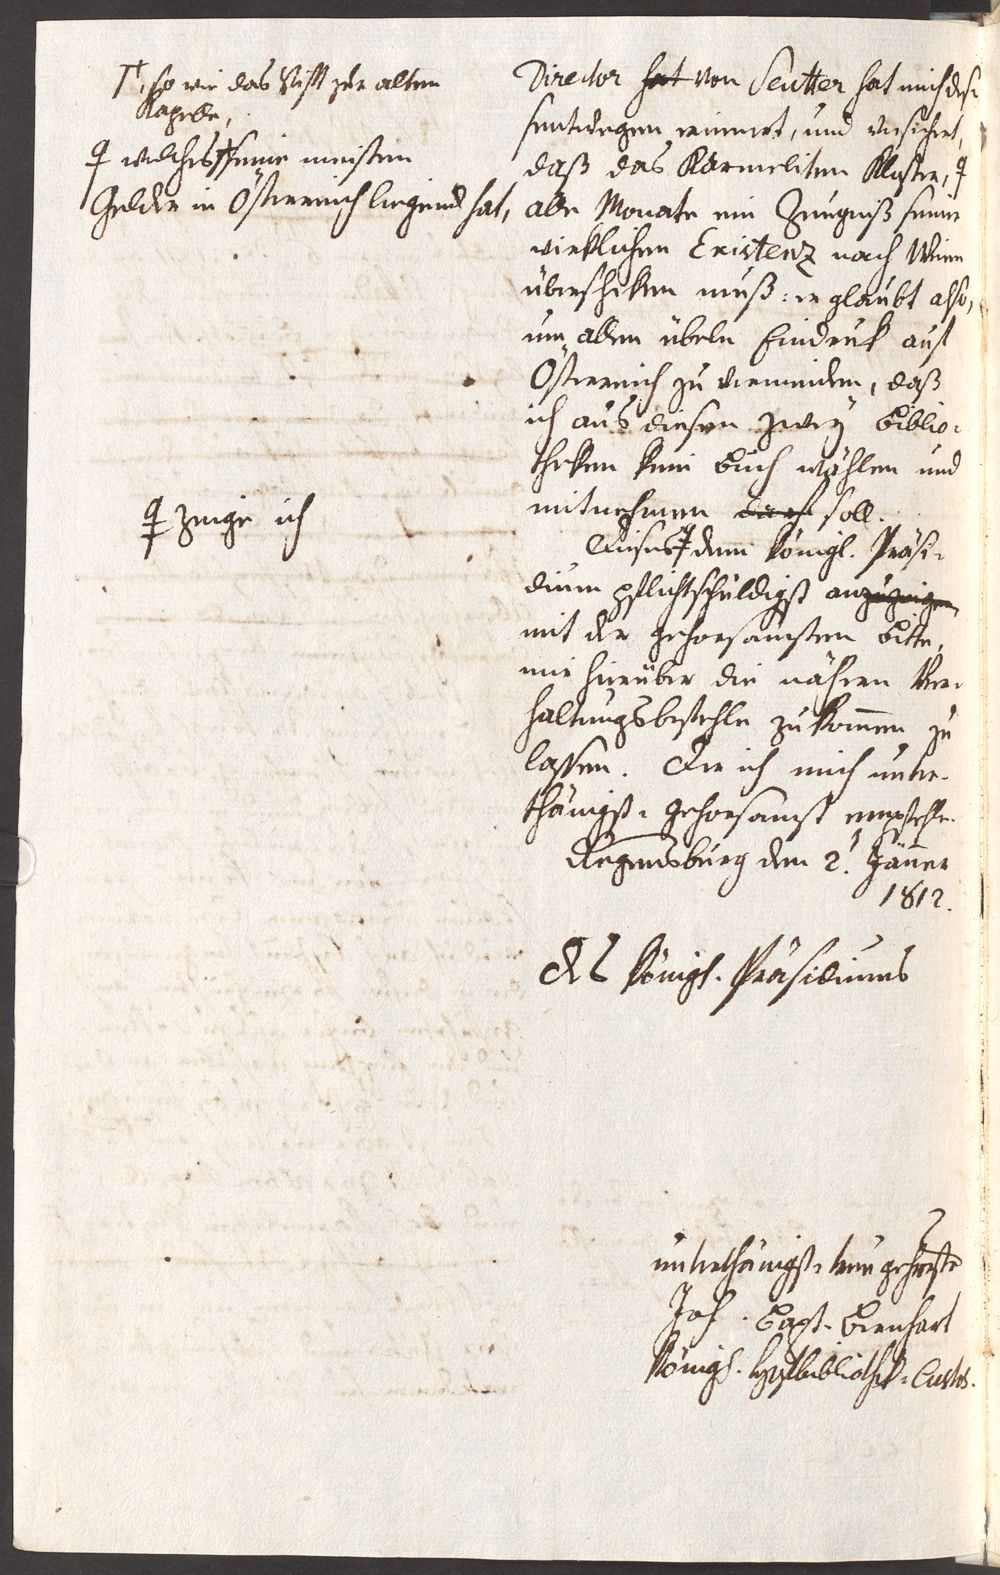 Γ†, so wie das Stift zur alten
Kapelle,
♀ welches Γ† seine meisten
Gelder in Österreich liegend hat,
♀ zeige ich
Director hat von Seutter hat mich des-
sentwegen erinnert, und versichert,
daß das Karmeliten Kloster, ♀
alle Monate ein Zeugniß seiner
wirklichen Existenz nach Wien
überschiken muß: er glaubt also,
um allen übeln Eindruk auf
Österreich zu vermeiden, daß
ich aus diesen zwey Biblio-
theken kein Buch wählen und
mitnehmen darf soll.
Dieses ♀ dem Königl. Präsi-
dium pflichtschuldigst anzuzeigen
mit der gehorsamsten Bitte,
mir hierüber die nähern Ver-
haltungsbefehle zukom̅en zu
lassen. Der ich mich unter-
thänigst-gehorsamst empfehle.
Regensburg den 2. Jäner
1812.
Des Königl. Präsidiums
unterthänigst-treu gehorste
Joh. Bapt. Bernhart
Königl. Hofbibliothek-Custos.